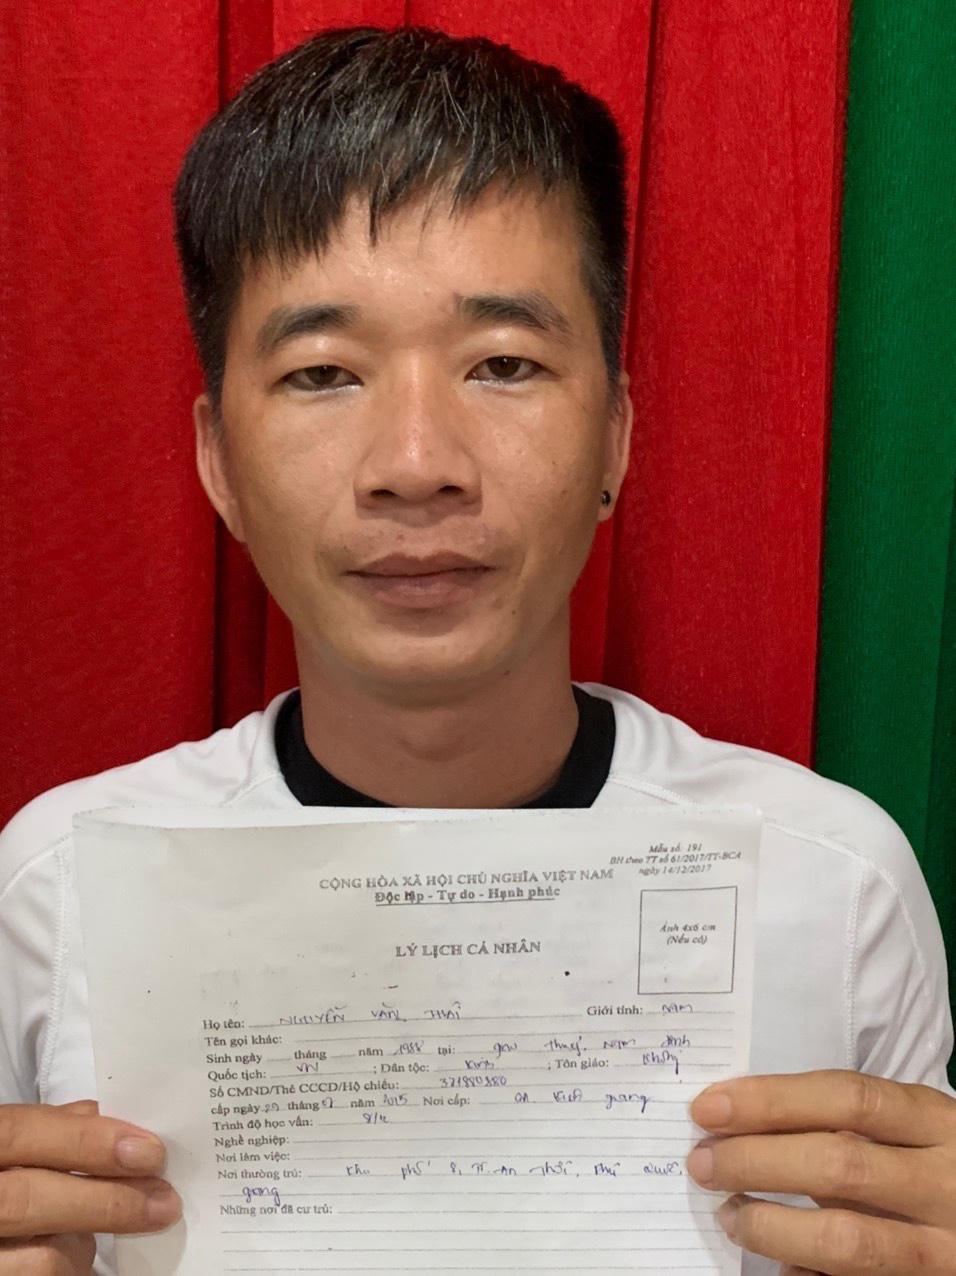 Mẫu số: 191
BH theo TT số 61/2017/TT-BCA
ngày 14/12/2017
CỘNG HÒA XÃ HỘI CHỦ NGHĨA VIỆT NAM
Độc lập - Tự do - Hạnh phúc
Ảnh 4x6 cm
(Nếu có)
LÝ LỊCH CÁ NHÂN
Họ tên: NGUYỄN VĂN THÁI Giới tính: NAM
Tên gọi khác:
Sinh ngày tháng năm 1988 tại: giao thuỷ, NAM định
Quốc tịch: VN ; Dân tộc: Kinh ; Tôn giáo: Không
Số CMND/Thẻ CCCD/Hộ chiếu:
cấp ngày tháng năm 2015 Nơi cấp: CA Kiên giang
Trình độ học vấn:
Nghề nghiệp:
Nơi làm việc:
Nơi thường trú: Khu phố 8, TT. An Thới, Phú Quốc,
giang
Những nơi đã cư trú: